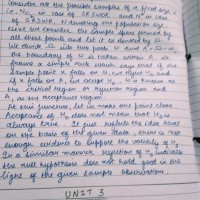 Consider all the possible samples of a fixed size
i.e., n, in case of SRSWOR, and N^n in case
of SRSWR, N denoting the population size
Next we consider the sample space formed by
all these points and let it be denoted by Ω.
We divide Ω into two parts ω and A = Ω - ω
the boundary of ω is taken within ω. We
frame a simple rule which says that if the
sample point x falls on ω, we reject H₀ and
if x falls on A, we accept H₀. ω is known as
the critical region or rejection region and
A, as the acceptance region.
At this juncture, let us make one point clear.
Acceptance of H₀ does not mean that H₀ is
always true. It just reflects the idea that
on the basis of the given data, there is not
enough evidence to suspect the validity of H₀
In a similar manner, rejection of H₀ indicates
the null hypothesis does not hold good in the
light of the given sample observation.
UNIT 3